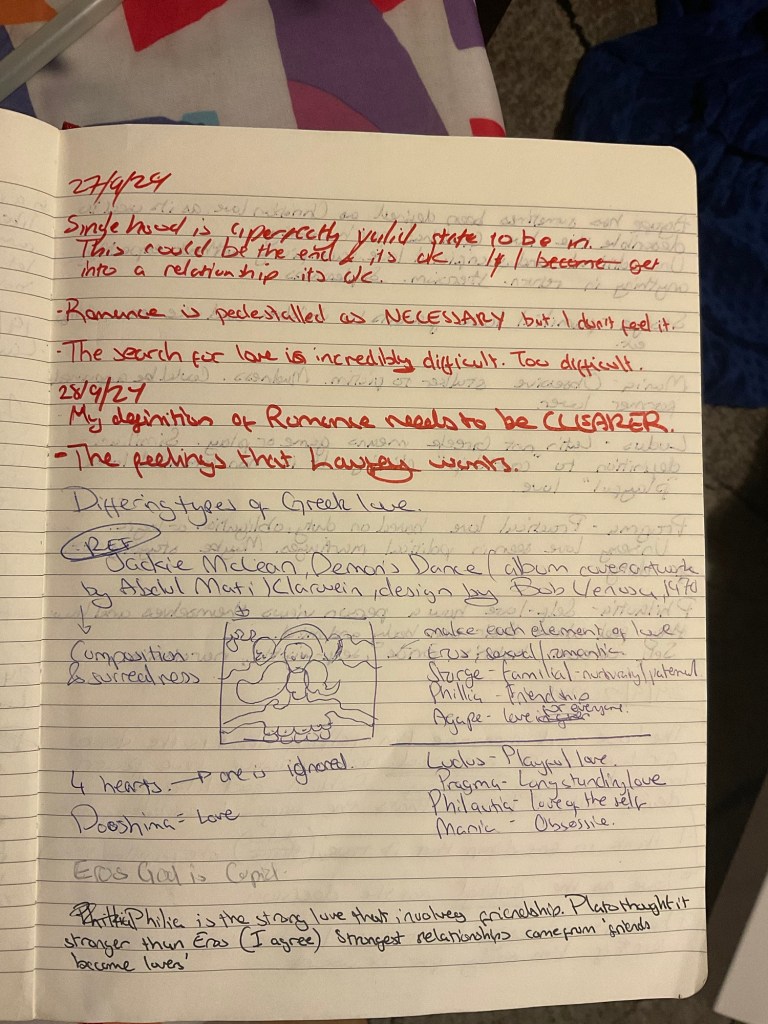 27/9/24
Singlehood is a perfectly valid state to be in.
This could be the end & its ok. If I become get
into a relationship its ok.
- Romance is pedestalled as NECESSARY but I don't feel it.
- The search for love is incredibly difficult. Too difficult.
28/9/24
- My definition of Romance needs to be CLEARER.
- The feelings that wants.
Differing types of Greek love.
REF
Jackie McLean, Demon's Dance / album cover artwork
by Abdul Mati Klarwein, design by Bob Venosa, 1970
Composition
& surrealness
make each element of love
Eros - sexual/romantic
Storge - Familial - nurturing/paternal
Phillia - Friendship
Agape - love for everyone.
Ludus - Playful love.
Pragma - Longstanding love
Philautia - love of the self
Mania - Obsessive.
4 hearts. → one is ignored.
Dooshima = Love
Eros God is Cupid.
Philia is the strong love that involves friendship. Plato thought it
stronger than Eros (I agree) Strongest relationships come from 'friends
become lovers'